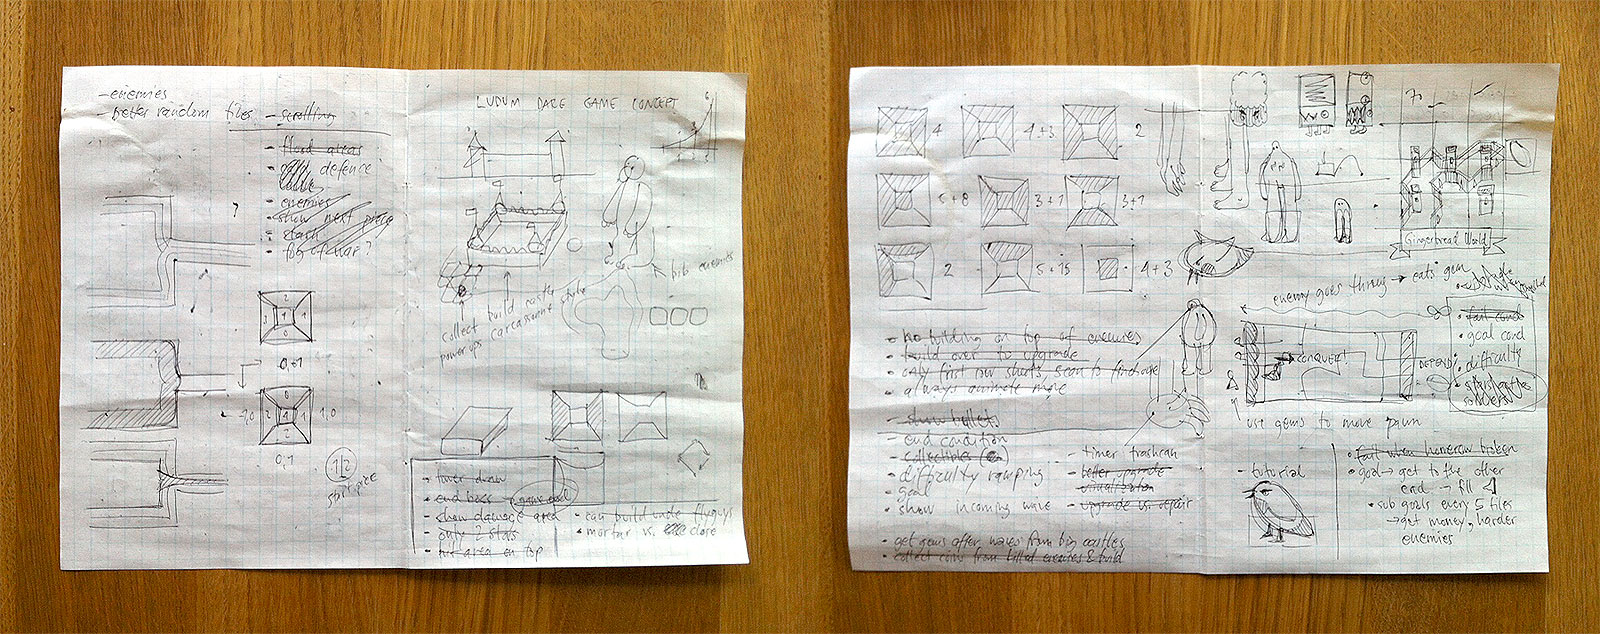 - enemies
- better random tiles
- scrolling
- flood areas
- defence
- enemies
- show next piece
- stash
- fog of war?
?
2
1
0
0,-1
0
2 1 1
2
-1,0
1,0
0,1
1/2
start piece
LUDUM DARE GAME CONCEPT
big enemies
collect
power ups
build castle
carcassonne style
- tower draw
- end boss → game goal
- show damage area
- only 2 slots
- hit area on top
- can build under flyguys
- mortar vs. close
4
4+3
2
5+8
3+7
3+7
2
5+15
4+3
- no building on top of enemies
- build over to upgrade
- only first row shoots, scan to find edge
- always animate more
- show bullets
- end condition
- collectibles
- difficulty ramping
- goal
- show incoming wave
- timer trashcan
- better upgrade
visualisation
- upgrade vs. repair
- get gems after waves from big castles
- collect coins from killed enemies & build
Gingerbread World
enemy goes throug → eats gem
- fail cond
- goal cond
- difficulty
CONQUER!
DEFEND
use gems to move pawn
- tutorial
- fail when homerow broken
- goal → get to the other
end → fill
- sub goals every 5 tiles
→ get money, harder
enemies